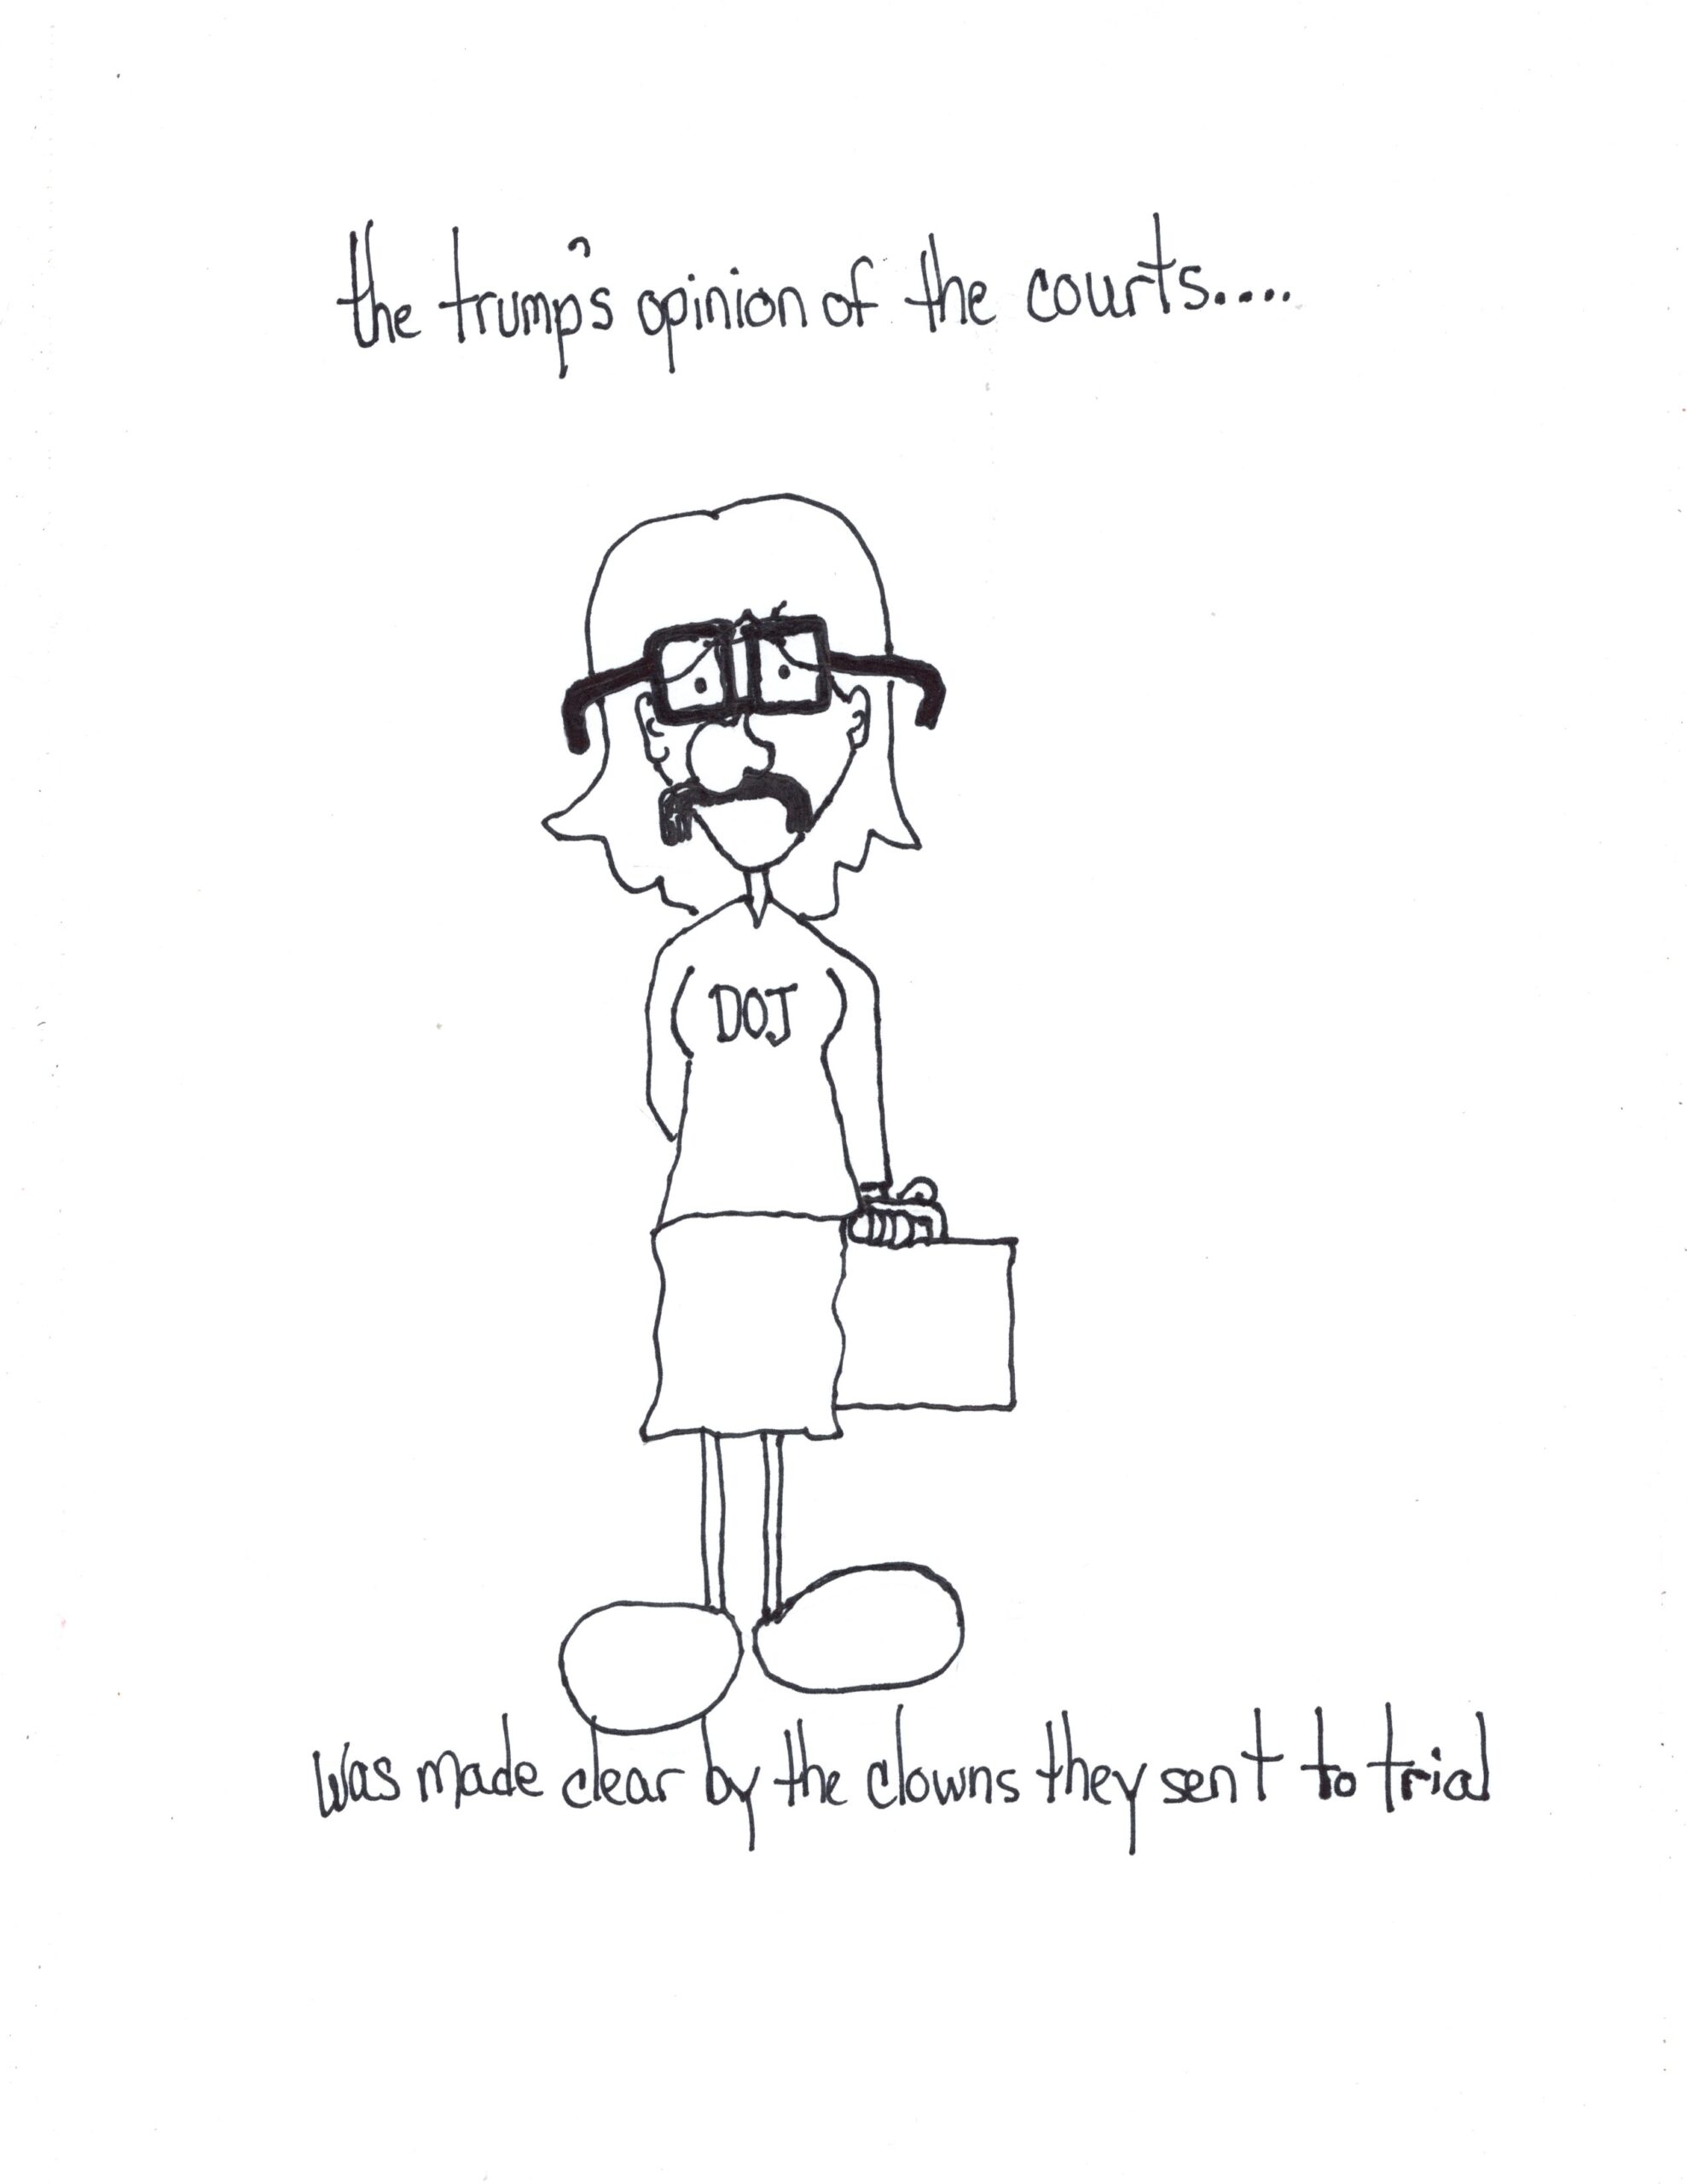 the trump's opinion of the courts.....
DOJ
was made clear by the clowns they sent to trial